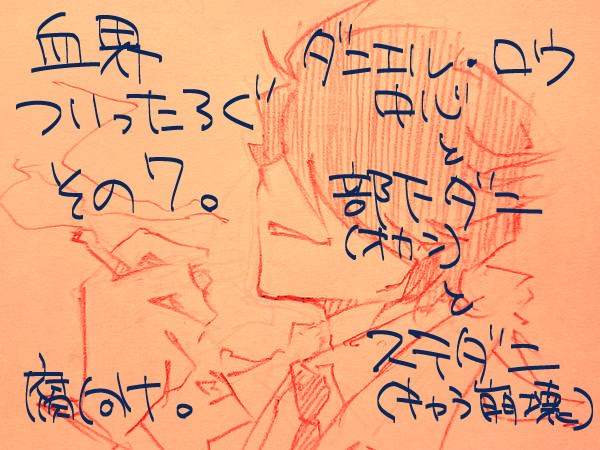 血界
ついったろぐ
その7。
腐向け。
ダニエル・ロウ
中心
と
部下ダニ
(オカン)
と
ステダニ
(キャラ崩壊)